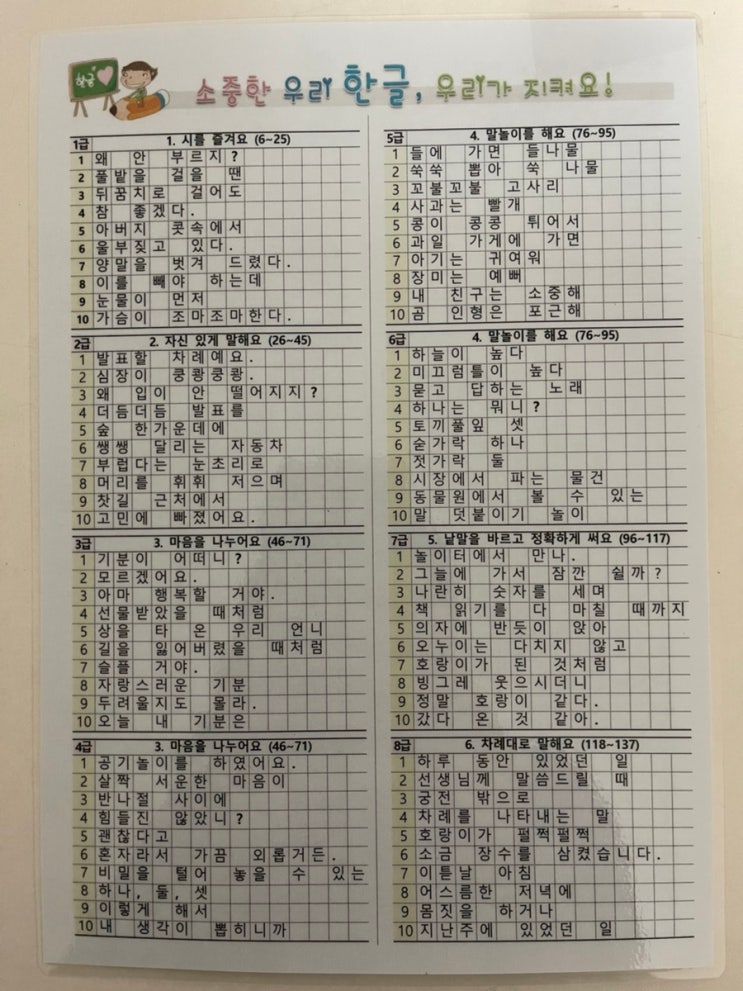 한글
소중한 우리 한글, 우리가 지켜요!
1급 1. 시를 즐겨요 (6~25)
1 왜 안 부르지?
2 풀밭을 걸을 땐
3 뒤꿈치로 걸어도
4 참 좋겠다.
5 아버지 콧속에서
6 울부짖고 있다.
7 양말을 벗겨 드렸다.
8 이를 빼야 하는데
9 눈물이 먼저
10 가슴이 조마조마한다.
2급 2. 자신 있게 말해요 (26~45)
1 발표할 차례예요.
2 심장이 쿵쾅쿵쾅.
3 왜 입이 안 떨어지지?
4 더듬더듬 발표를
5 숲 한가운데에
6 쌩쌩 달리는 자동차
7 부럽다는 눈초리로
8 머리를 휘휘 저으며
9 찻길 근처에서
10 고민에 빠졌어요.
3급 3. 마음을 나누어요 (46~71)
1 기분이 어떠니?
2 모르겠어요.
3 아마 행복할 거야.
4 선물받았을 때처럼
5 상을 타 온 우리 언니
6 길을 잃어버렸을 때처럼
7 슬플 거야.
8 자랑스러운 기분
9 두려울지도 몰라.
10 오늘 내 기분은
4급 3. 마음을 나누어요 (46~71)
1 공기놀이를 하였어요.
2 살짝 서운한 마음이
3 반나절 사이에
4 힘들진 않았니?
5 괜찮다고
6 혼자라서 가끔 외롭거든.
7 비밀을 털어 놓을 수 있는
8 하나, 둘, 셋
9 이렇게 해서
10 내 생각이 뽑히니까
5급 4. 말놀이를 해요 (76~95)
1 들에 가면 들나물
2 쑥쑥 뽑아 쑥 나물
3 꼬불꼬불 고사리
4 사과는 빨개
5 콩이 콩콩 튀어서
6 과일 가게에 가면
7 아기는 귀여워
8 장미는 예뻐
9 내 친구는 소중해
10 곰 인형은 포근해
6급 4. 말놀이를 해요 (76~95)
1 하늘이 높다
2 미끄럼틀이 높다
3 묻고 답하는 노래
4 하나는 뭐니?
5 토끼풀잎 셋
6 숟가락 하나
7 젓가락 둘
8 시장에서 파는 물건
9 동물원에서 볼 수 있는
10 말 덧붙이기 놀이
7급 5. 낱말을 바르고 정확하게 써요 (96~117)
1 놀이터에서 만나.
2 그늘에 가서 잠깐 쉴까?
3 나란히 숫자를 세며
4 책 읽기를 다 마칠 때까지
5 의자에 반듯이 앉아
6 오누이는 다치지 않고
7 호랑이가 된 것처럼
8 빙그레 웃으시더니
9 정말 호랑이 같다.
10 갔다 온 것 같아.
8급 6. 차례대로 말해요 (118~137)
1 하루 동안 있었던 일
2 선생님께 말씀드릴 때
3 궁전 밖으로
4 차례를 나타내는 말
5 호랑이가 펄쩍펄쩍
6 소금 장수를 삼켰습니다.
7 이튿날 아침
8 어스름한 저녁에
9 몸짓을 하거나
10 지난주에 있었던 일